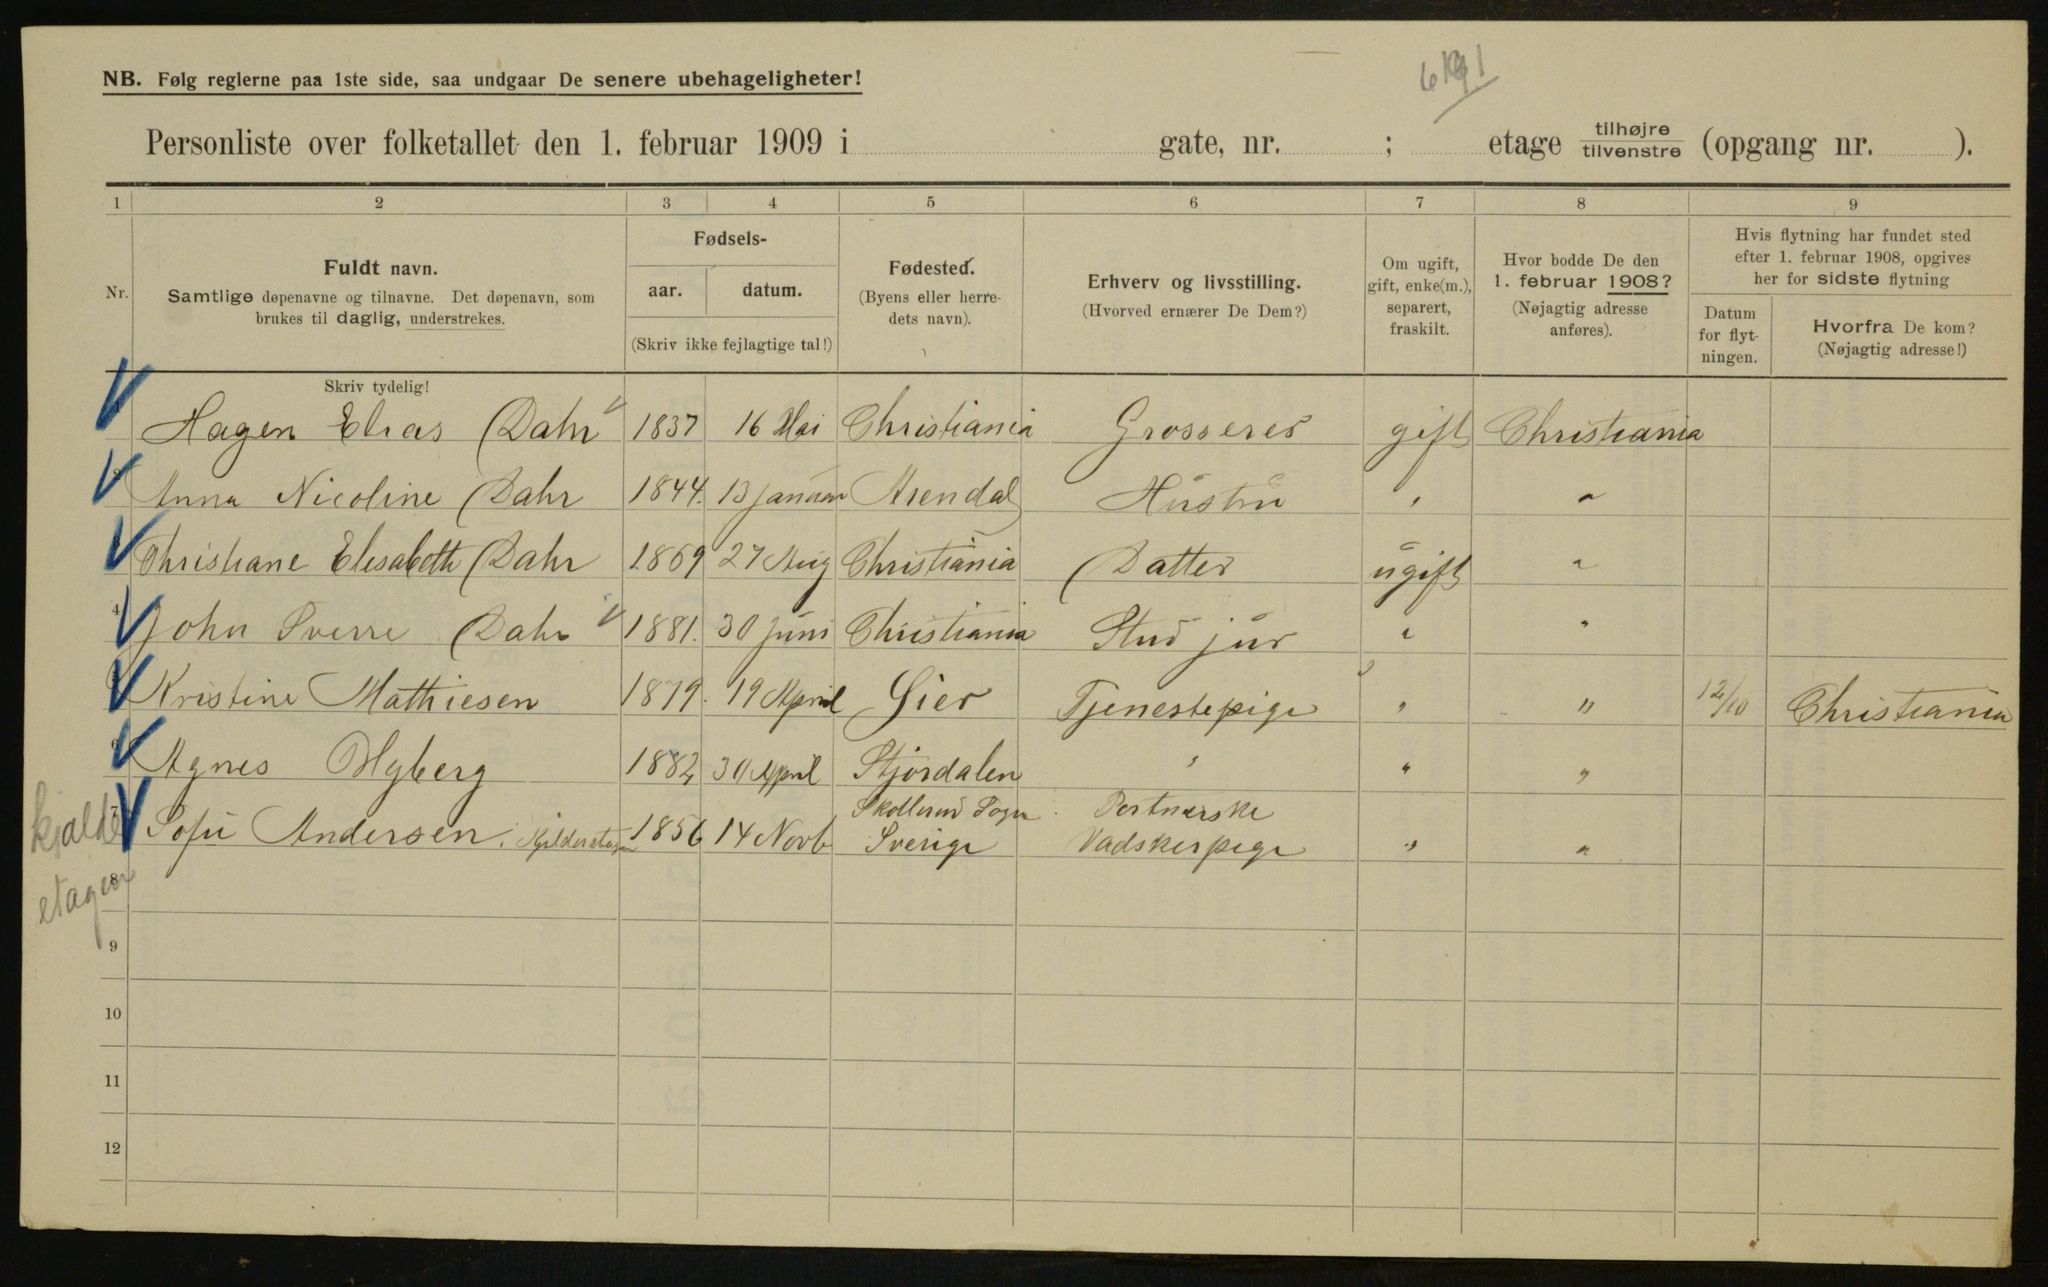 NB. Følg reglerne paa 1ste side, saa undgaar De senere ubehageligheter!
Personliste over folketallet den 1. februar 1909 i gate, nr. ; etage tilhøjre tilvenstre (opgang nr. ).
1 2 3 4 5 6 7 8 9
Nr.
Fuldt navn.
Samtlige døpenavne og tilnavne. Det døpenavn, som
brukes til daglig, understrekes.
Skriv tydelig!
Fødsels-
aar. datum.
(Skriv ikke fejlagtige tal!)
Fødested.
(Byens eller herre-
dets navn).
Erhverv og livsstilling.
(Hvorved ernærer De Dem?)
Om ugift,
gift, enke(m.),
separert,
fraskilt.
Hvor bodde De den
1. februar 1908?
(Nøjagtig adresse
anføres).
Hvis flytning har fundet sted
efter 1. februar 1908, opgives
her for sidste flytning
Datum
for flyt-
ningen.
Hvorfra De kom?
(Nøjagtig adresse!)
Hagen Elias Dahr 1837 16 Mai Christiania Grosserer gift Christiania
Anna Nicoline Dahr 1844. 13 januar Arendal Hustru " "
Christiane Elisabeth Dahr 1869 27 Aug Christiania Datter ugift "
4 John Sverre Dahr 1881. 30 juni Christiania Stud jur " "
Kristine Mathiesen 1879. 19 April Lier Tjenestepige " " 12/10 Christiania
6 Agnes Myberg 1882 30 April Stjordalen " " "
7 Sofie Andersen. Kjelderetagen 1856 14 Novb Sogn Sverige Vadskerpige " "
kjalder
etagen
8
9
10
11
12